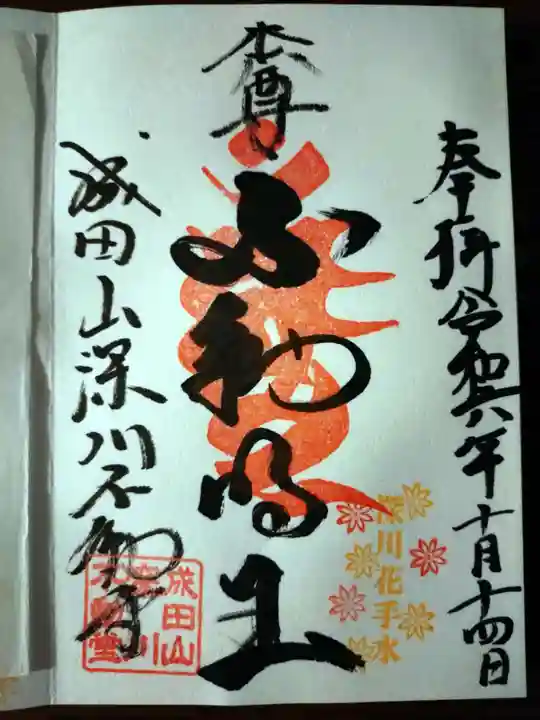 奉拝 令和六年十月十四日
本尊
不動明王
深川花手水
成田山深川不動堂
成田山
深川
不動堂